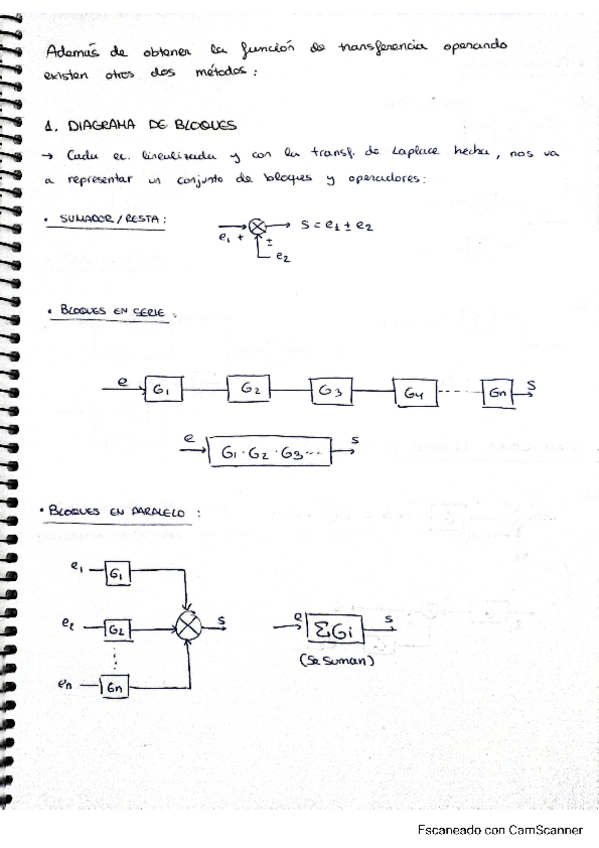 Además de obtener la función de transferencia operando
existen otros dos métodos:
1. DIAGRAMA DE BLOQUES
→ Cada ec. linealizada y con la transf. de Laplace hecha, nos va
a representar un conjunto de bloques y operadores:
• SUMADOR/RESTA:
e1 + ± e2 S = e1 ± e2
• BLOQUES EN SERIE:
e G1 G2 G3 G4 Gn S
e G1·G2·G3... S
• BLOQUES EN PARALELO:
e1 G1
e2 G2 S e ΣGi S
(Se suman)
en Gn
Escaneado con CamScanner